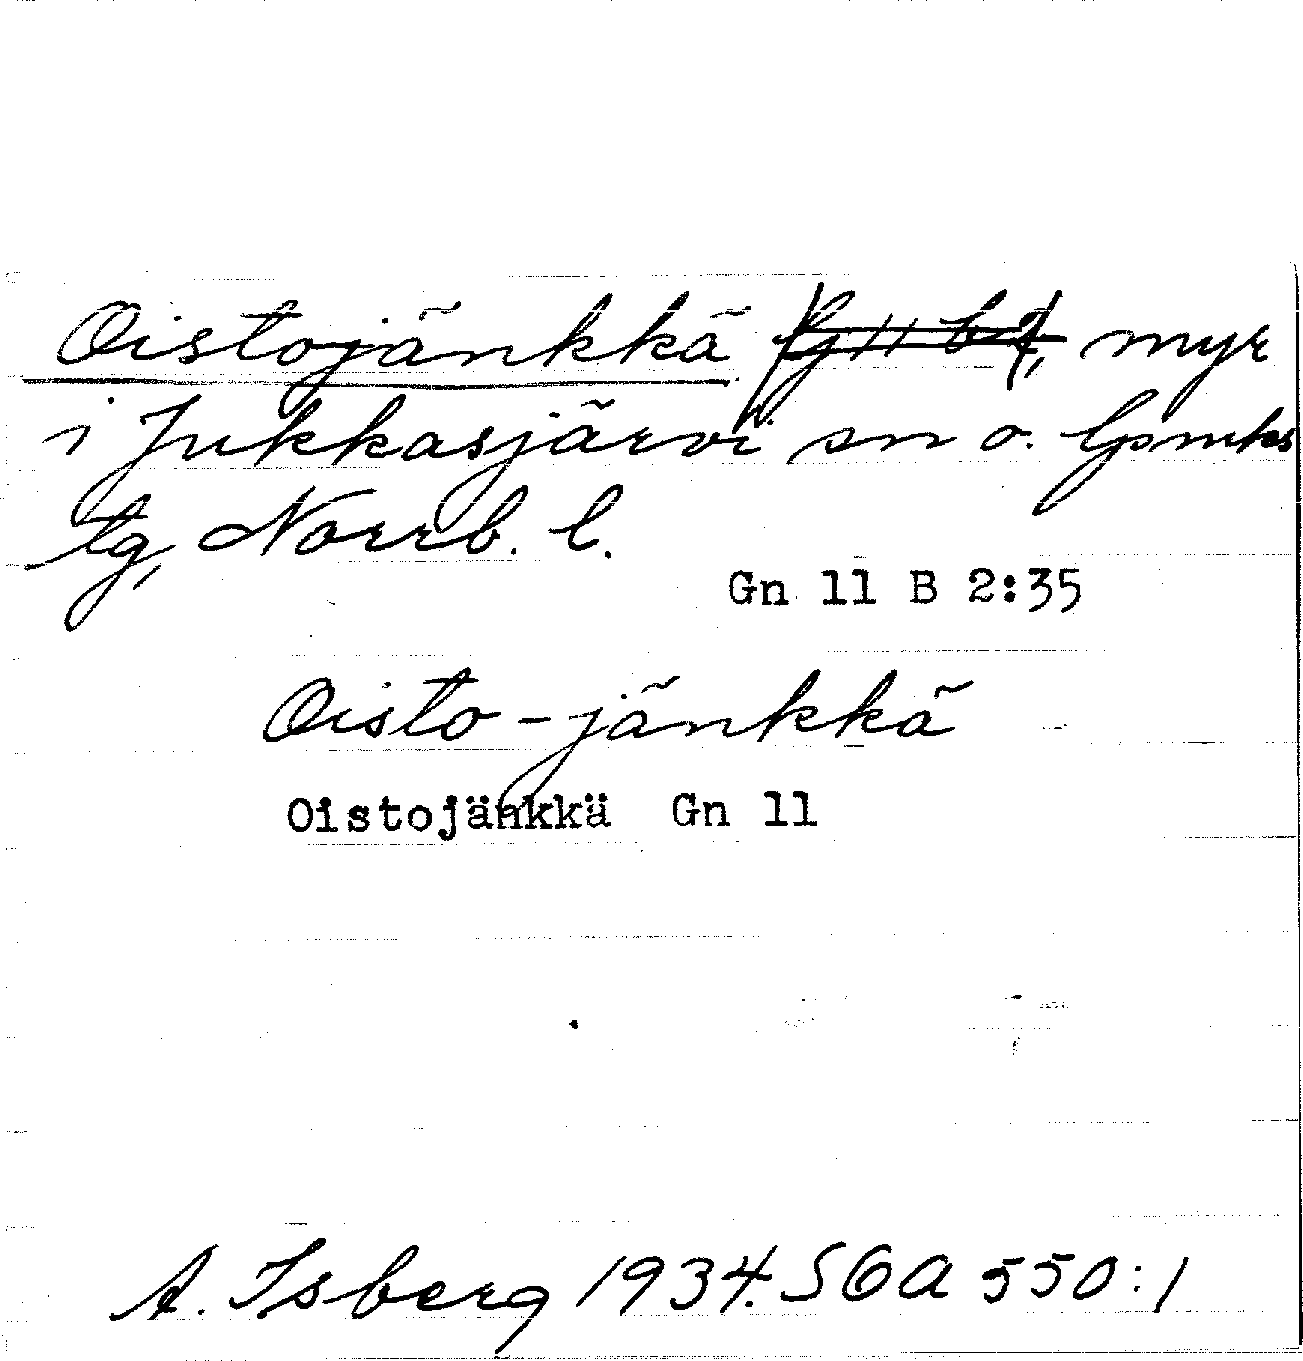 Oistojänkkä myr
i Jukkasjärvi sn o. lpsmks
tg, Norrb. l.
Gn 11 B 2:35
Oisto-jänkkä
Oistojänkkä Gn 11
A. Isberg 1934. SOA 550:1